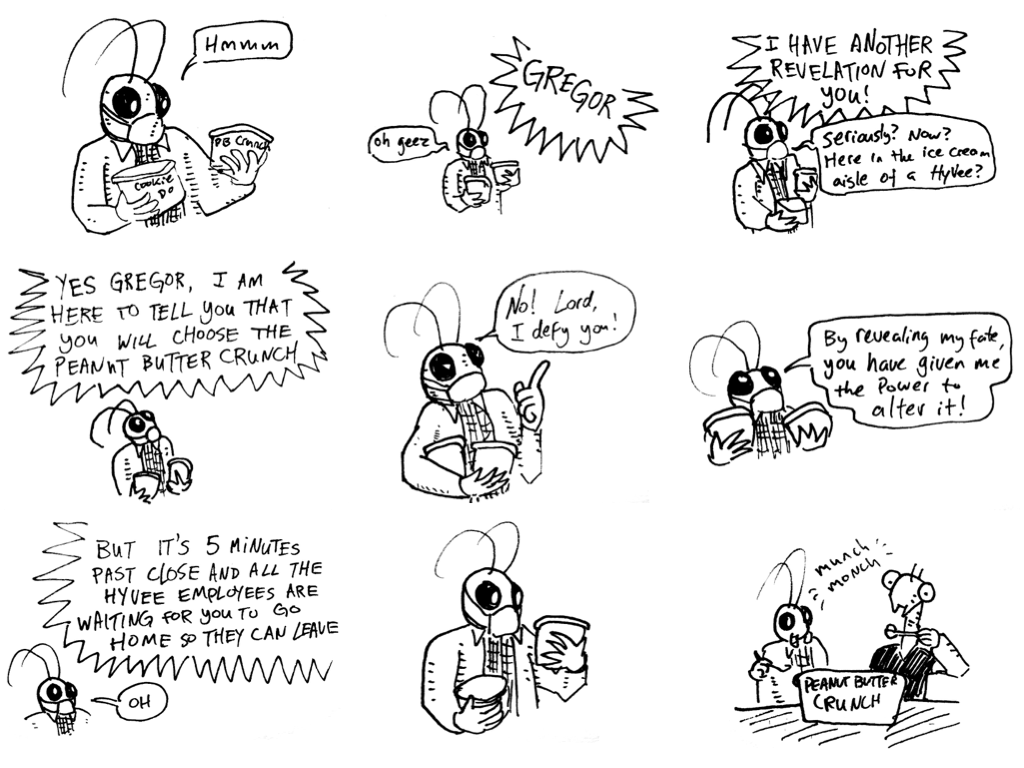 Hmmmm
COOKIE
DO
PB Crunch
GREGOR
oh geez
I HAVE ANOTHER
REVELATION FOR
YOU!
Seriously? Now?
Here in the ice cream
aisle of a HyVee?
YES GREGOR, I AM
HERE TO TELL YOU THAT
YOU WILL CHOOSE THE
PEANUT BUTTER CRUNCH
No! Lord,
I defy you!
By revealing my fate,
you have given me
the power to
alter it!
BUT IT'S 5 MINUTES
PAST CLOSE AND ALL THE
HYVEE EMPLOYEES ARE
WAITING FOR YOU TO GO
HOME SO THEY CAN LEAVE
OH
munch
monch
PEANUT BUTTER
CRUNCH